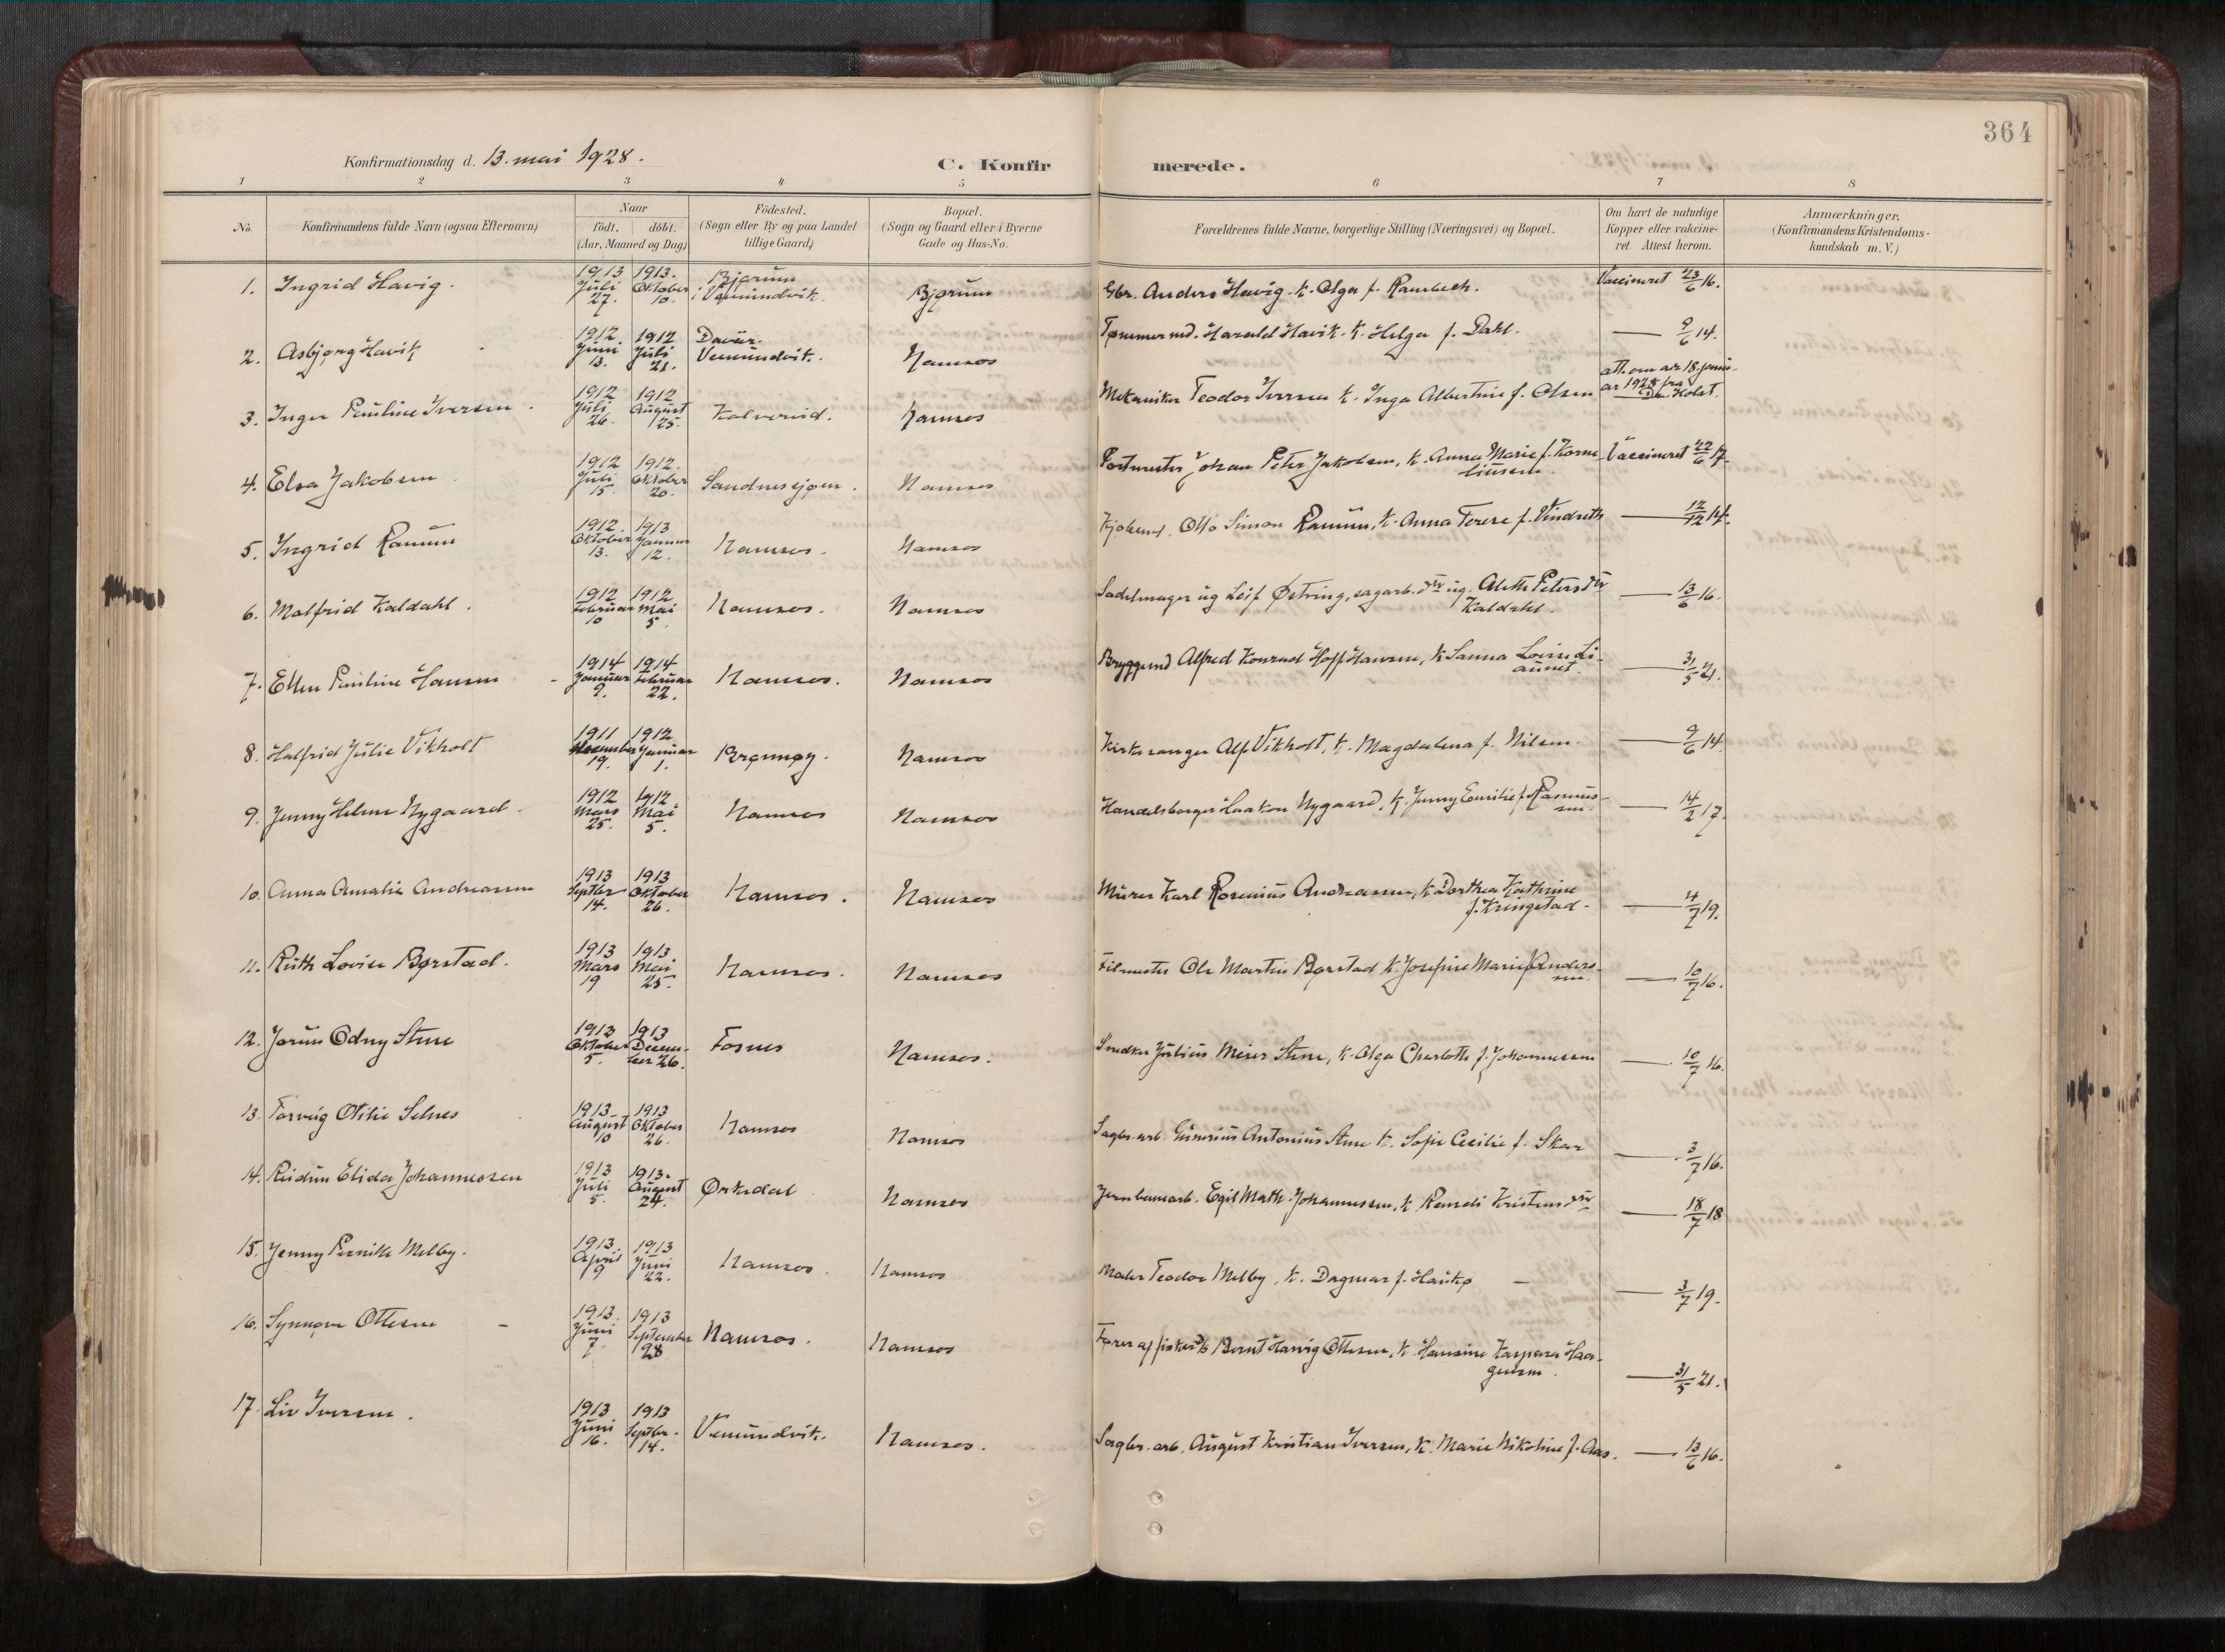 364
Konfirmationsdag d. 13. mai 1928.
C. Konfirmerede.
1 2 3 4 5 6 7 8
No. Konfirmandens fulde Navn (ogsaa Efternavn) Naar födt. döbt. (Aar, Maaned og Dag) Födested. (Sogn eller By og paa Landet tillige Gaard) Bopæl. (Sogn og Gaard eller i Byerne Gade og Hus-No. Forældrenes fulde Navne, borgerlige Stilling (Næringsvei) og Bopæl. Om havt de naturlige Kopper eller vakcineret. Attest herom. Anmærkninger. (Konfirmandens Kristendomskundskab m. V.)
1. Ingrid Havig. 1913 Juli 27. 1913. Oktober 10. Bjørum i Vemundvik. Bjørum Gbr. Anders Havig. k. Olga f. Rambech. Vaccineret 23/6 16.
2. Asbjørg Havik 1912 Juni 13. 1912 Juli 21. Vemundvik. Namsos Tømmermd. Harald Havik. k. Helga f. Dahl. — 9/6 14.
3. Inger Pauline Iversen. 1912 Juli 26. 1912 August 25. Kolvereid. Namsos Mekaniker Teodor Iversen k. Inga Albertine f. Olsen att. om ar 18. januar 1928 fra Dr. Holst.
4. Elsa Jakobsen 1912 Juli 15. 1912. Oktober 20. Sandnessjøen. Namsos Postmester Johan Peter Jakobsen, k. Anna Marie f. Korneliussen Vaccineret 22/6 17.
5. Ingrid Ranum 1912. Oktober 13. 1913 Januar 12. Namsos. Namsos Kjøbmd. Otto Simon Ranum, k. Anna Terese f. Vindseth — 12/12 14.
6. Malfrid Kaldahl. 1912 Februar 10 1912 Mai 5. Namsos. Namsos Sadelmager ug Leif Østring, sagarb. dtr ug. Aleth Petersdtr Kaldahl. — 13/6 16.
7. Ellen Pauline Hansen 1914 Januar 9. 1914 Februar 22. Namsos. Namsos Bryggemd Alfred Konrad Hoff Hansen, k Sanna Lovise Liaunet. — 31/5 21.
8. Halfrid Julie Vikholt 1911 19. 1912 Januar 1. Brønnøy. Namsos Kirkesanger Alf Vikholt, k. Magdalena f. Nilsen. — 9/6 14.
9. Jenny Helene Nygaard. 1912 Mars 25. 1912. Mai 5. Namsos Namsos Handelsborger Haakon Nygaard, k. Jenny Emilie f. Rasmussen. — 14/2 17.
10. Anna Amalie Andreassen 1913 Septbr 14. 1913 Oktober 26. Namsos. Namsos Murer Karl Rosenius Andreassen, k Dorthea Kathrine f. Kringstad. — 4/7 19.
11. Ruth Lovise Børstad. 1913 Mars 19 1913 Mai 25. Namsos. Namsos Filmester Ole Martin Børstad k. Josefine Marie f Andersen. — 10/7 16.
12. Jorun Odny Stene 1913 Oktober 5. 1913 December 26. Fosnes Namsos. Snedker Julius Meier Stene, k. Olga Charlotte f. Johannessen — 10/7 16.
13. Torveig Otilie Selnes 1913. August 10 1913 Oktober 26. Namsos Namsos Sagbr. arb. Antonius Stene k. Sofie Cecilie f. Skar — 3/7 16.
14. Reidun Elida Johannessen 1913 Juli 5. 1913. August 24. Orkedal Namsos Jernbanearb. Egil Math. Johannessen, k Randi Kristensdtr — 18/7 18
15. Jenny Pernille Melby. 1913. April 9 1913 Juni 22. Namsos. Namsos Maler Teodor Melby, k. Dagmar f. Haukø — 3/7 19.
16. Synnøve Ottesen 1913. Juni 7. 1913 September 28 Namsos. Namsos Fører af fisker d/s Bernt Harvig Ottesen, k. Hansine Kaspara Haagensen. — 31/5 21.
17. Liv Iversen. 1913 Juni 16. 1913 Septbr. 14. Vemundvik. Namsos. Sagbr. arb. August Kristian Iversen, k. Marie Nikoline f. Aas. — 13/6 16.